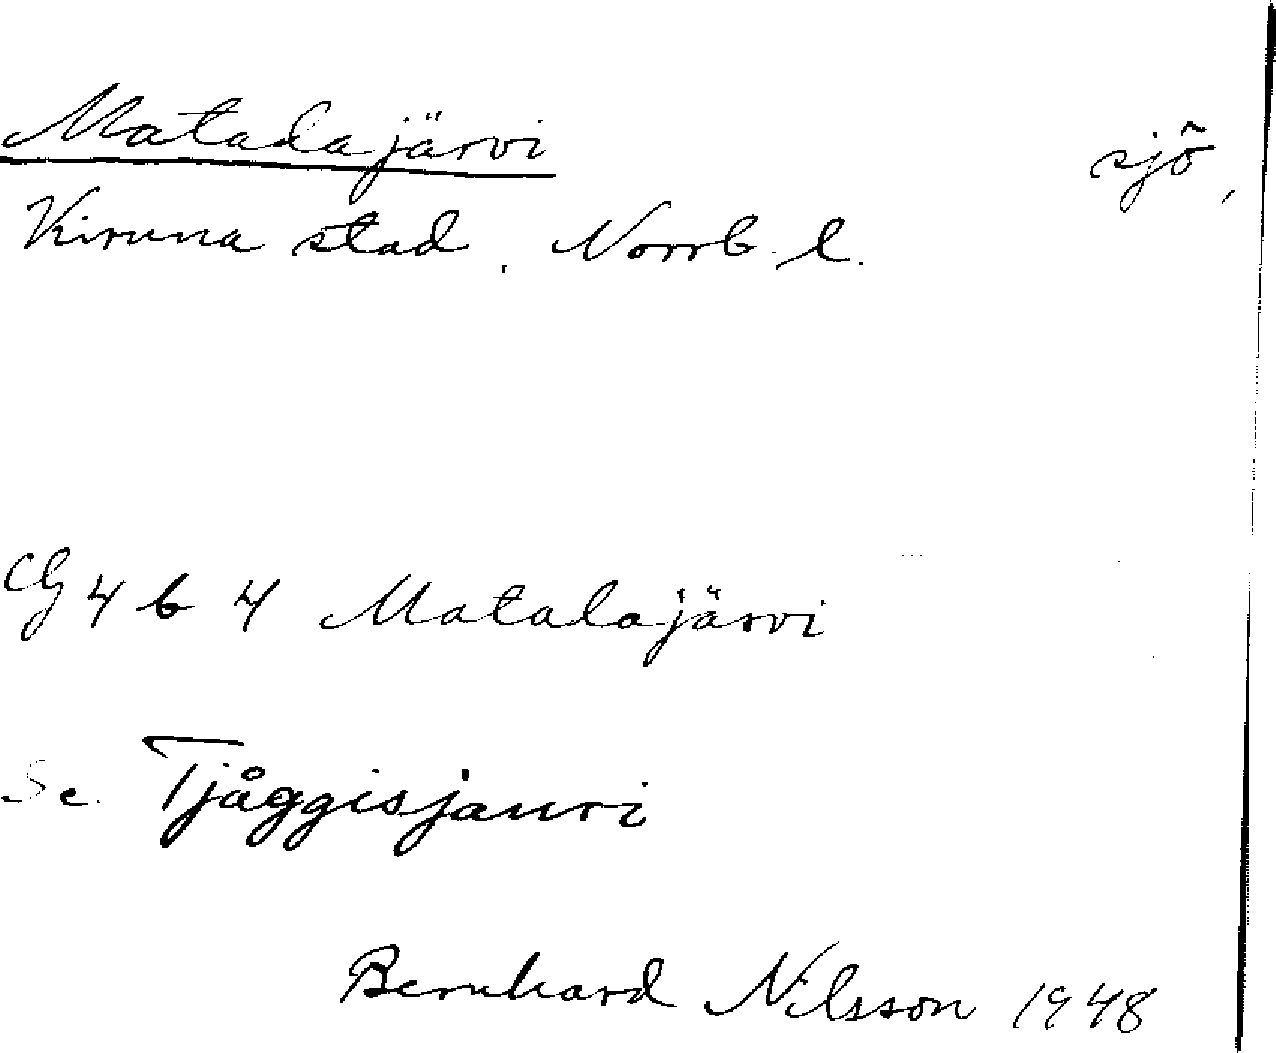 Matalajärvi sjö,
Kiruna stad, Norrb. l.
CG 4 b 4 Matalajärvi
Se Tjåggisjauri
Bernhard Nilsson 1948